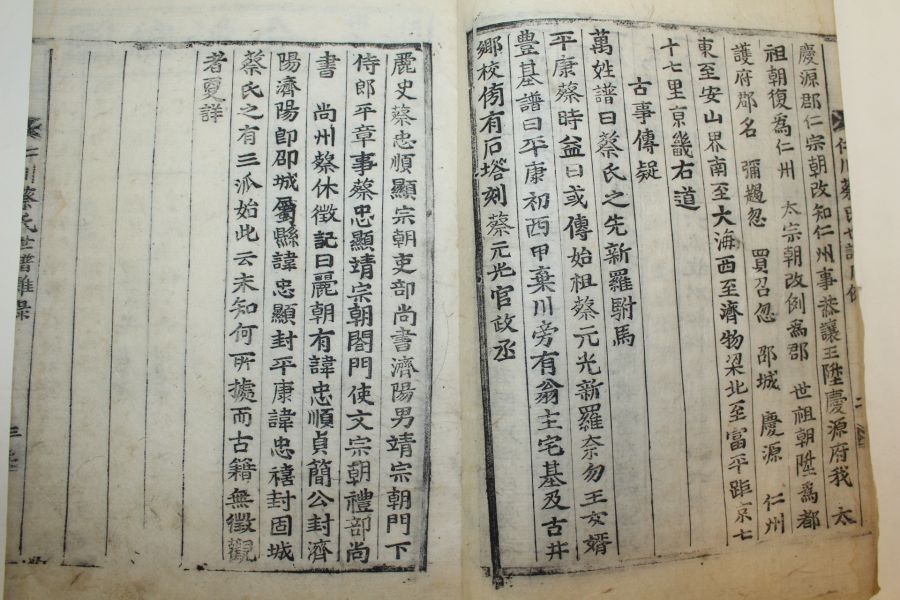 慶源郡仁宗朝改知仁州事恭讓王陞慶源府我 太
祖朝復爲仁州 太宗朝改例爲郡 世祖朝陞爲都
護府郡名 彌趨忽 買召忽 邵城 慶源 仁州
東至安山界南至大海西至濟物梁北至富平距京七
十七里京畿右道
古事傳疑
萬姓譜曰蔡氏之先新羅駙馬
平康蔡時益曰或傳始祖蔡元光新羅奈勿王女婿
豊基譜曰平康初西甲棄川旁有翁主宅基及古井
鄕校傍有石塔刻蔡元光官政丞
麗史蔡忠順顯宗朝吏部尚書濟陽男靖宗朝門下
侍郎平章事蔡忠顯靖宗朝閤門使文宗朝禮部尚
書 尚州蔡休徵記曰麗朝有諱忠順貞簡公封濟
陽濟陽卽邵城屬縣諱忠顯封平康諱忠禧封固城
蔡氏之有三派始此云未知何所據而古籍無徵觀
者更詳
仁川蔡氏世譜雜錄
三